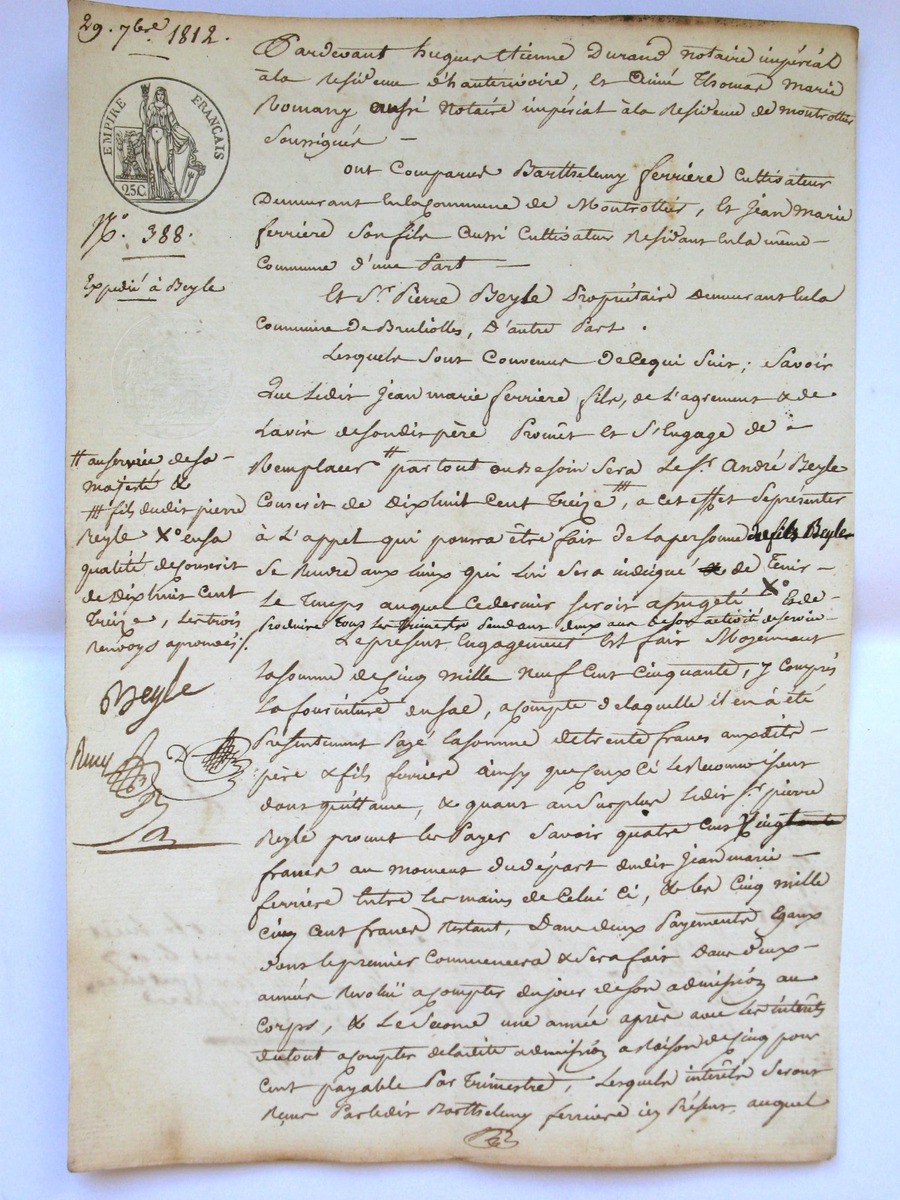 29. 7bre 1812.
EMPIRE FRANÇAIS
25C.
No. 388.
Expedié à Beyle
Pardevant hugues Etienne Durand Notaire impérial
à la Residence d'hauterivoire, et Aimé Thomas Marie
Romany aussi Notaire impérial à la Residence de montrottier
Soussignés —
ont Comparus Barthelemy ferriere Cultivateur
Demeurant en la Commune de Montrottier, et Jean Marie
ferriere Son fils Aussi Cultivateur Residant en la même
Commune d'une Part —
Et Sr. Pierre Beyle Propriétaire demeurant en la
Commune de Brulliolles, D'autre Part.
Lesquels Sont Convenus de Ce qui Suit; Savoir
Que Ledit Jean marie ferriere fils, de L'agrement & de
L'avis de Son dit père Promêt et S'Engage de
Remplacer # par tout ou Besoin Sera Le Sr. André Beyle
Conscrit de dix huit Cent Treize #, a cet effet Se presenter
à L'appel qui pourra être fait de la personne du fils Beyle
Se Rendre aux Lieux qui lui Sera indiqué de Tenir
Le Temps auquel Ce dernier Seroit assugeté Xo Et de
Produire Tous Les Trimestre Pendant deux ans de Son activité de Service
Le present Engagement Est fait Moyennant
La Somme de Cinq mille Neuf Cent Cinquante, y Compris
La fourniture du Sac, a Compte de laquelle il en à été
Presentement Payé La Somme de trente francs aux dits
père & fils ferriere Ainsy que Ceux Ci Le Reconnoissent
dont quittance, & quant au Surplus Ledit Sr. pierre
Beyle promet les Payer Savoir quatre Cent Vingt
francs au moment du départ dudit Jean marie
ferriere Entre Les mains de Celui Ci, & les Cinq mille
Cinq Cent francs Restant, Dans deux Payements Egaux
dont le premier Commencera & Sera fait Dans deux
années Revolü a Compter du jour de Son admission au
Corps, & Le Second une année après avec Les intérêts
du tout a Compter de la dite admission a Raison de Cinq pour
Cent payable Par Trimestre, Lesquels intérêts Seront
Reçus Par Ledit Barthelemy ferriere icy Présent auquel
# au Service de Sa
majesté &
# fils dudit pierre
Beyle Xo en Sa
qualité de Conscrit
de Dix huit Cent
Treize, Les trois
Renvoys aprouvés
Beyle